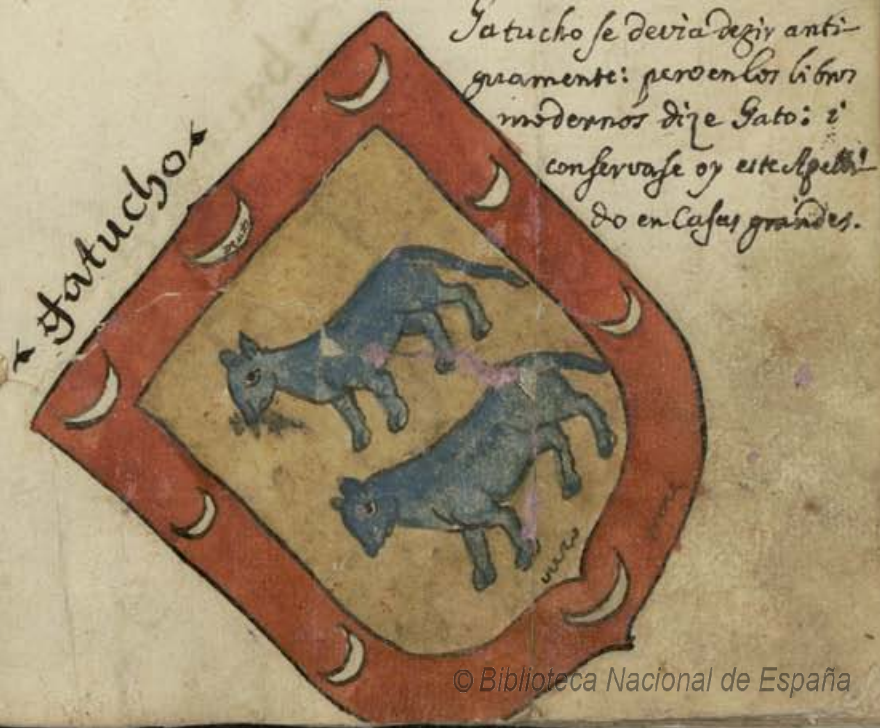 Gatucho se devia dezir anti-
guamente: pero en los libros
modernos dize Gato: i
conservase oy este Apelli-
do en Casas grandes.
Gatucho
© Biblioteca Nacional de España